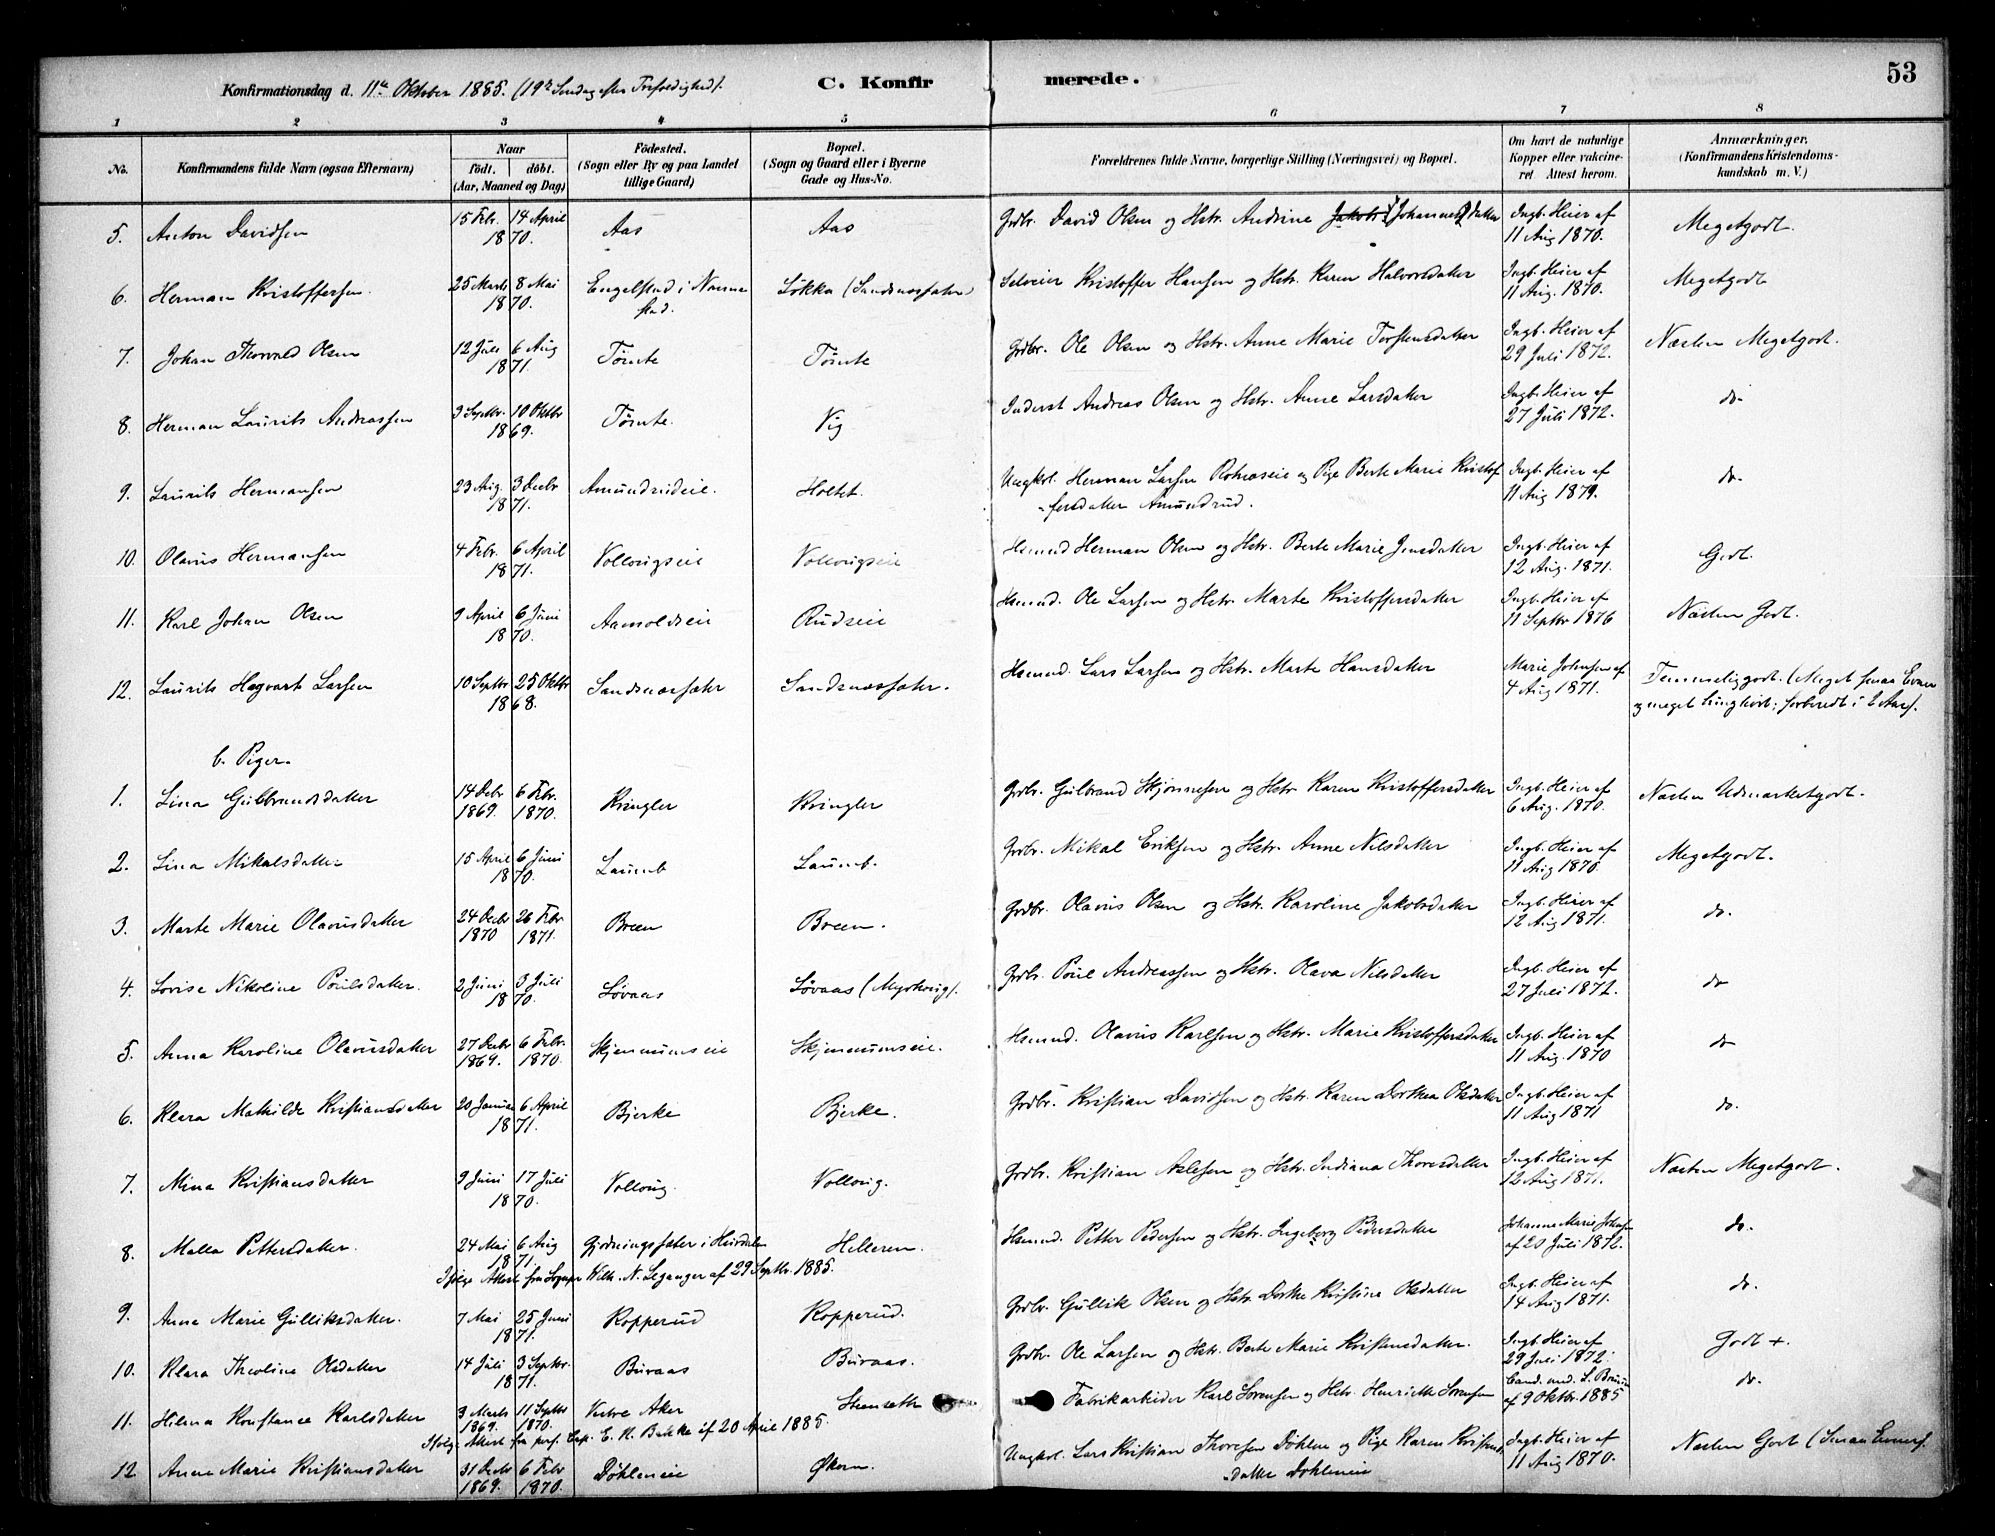 53
Konfirmationsdag d. 11te Oktober 1885. (19de Søndag efter Trefoldighed).
C. Konfirmerede.
1 2 3 4 5 6 7 8
No. Konfirmandens fulde Navn (ogsaa Efternavn) Naar födt. döbt. (Aar, Maaned og Dag) Födested. (Sogn eller By og paa Landet tillige Gaard) Bopæl. (Sogn og Gaard eller i Byerne Gade og Hus-No. Forældrenes fulde Navne, borgerlige Stilling (Næringsvei) og Bopæl. Om havt de naturlige Kopper eller vakcineret. Attest herom. Anmærkninger. (Konfirmandens Kristendomskundskab m. V.)
5. Anton Davidsen 15 Febr. 14 April 1870. Aas Aas Grdbr. David Olsen og Hstr. Andrine Jakobs (Johannes) datter Ingb. Heier af 11 Aug 1870. Megetgodt.
6. Herman Kristoffersen. 25 Marts 8 Mai 1870. Engelstad i Nannestad. Løkka (Sandsnæssæter) Selveier Kristoffer Hansen og Hstr. Karen Halvorsdatter Ingb. Heier af 11 Aug. 1870. Megetgodt
7. Johan Thorvald Olsen 12 Juli 6 Aug 1871. Tømte Tømte Grdbr. Ole Olsen og Hstr. Anne Marie Torstensdatter Ingb. Heier af 29 Juli 1872. Næsten Megetgodt.
8. Herman Laurits Andreassen 3 Septbr. 10 Oktbr 1869. Tømte. Vig Inderst Andreas Olsen og Hstr. Anne Larsdatter Ingb. Heier af 27 Juli 1872. do.
9. Laurits Hermansen 23 Aug. 3 Decbr 1871. Amundrudeie. Holtet. Ungkrl. Herman Larsen og Pige Berte Marie Kristoffersdatter Amundrud. Ingb. Heier af 11 Aug 1879. do.
10. Olavus Hermansen 4 Febr. 6 April 1871. Vollaugseie Vollaugseie Hsmnd Herman Olsen og Hstr. Berte Marie Jensdatter Ingb. Heier af 12 Aug. 1871. Godt.
11. Karl Johan Olsen 9 April 6 Juni 1870. Aamoldseie Rudseie Hsmnd. Ole Larsen og Hstr. Marte Kristoffersdatter Ingb. Heier af 11 Septbr 1876 Næsten Godt.
12. Laurits Hagvart Larsen 10 Septbr 25 Oktbr 1868. Sandsnæssæter Sandsnæssæter. Hsmnd. Lars Larsen og Hstr. Marte Hansdatter Marie Johnsen af 4 Aug 1871. Temmeliggodt. (Meget smaa Evner og meget tunghørt; forberedt i 2 Aar).
b. Piger.
1. Lina Gulbrandsdatter 14 Decbr 1869. 6 Febr. 1870. Kringler Kringler Grdbr. Gulbrand Skjønnesen og Hstr. Karen Kristoffersdatter Ingb. Heier af 6 Aug. 1870. Næsten Udmærketgodt.
2. Lina Mikalsdatter 15 April 6 Juni 1870. Laumb Laumb. Grdbr. Mikal Eriksen og Hstr. Anne Nilsdatter Ingb. Heier af 11 Aug 1870. Megetgodt.
3. Marte Marie Olavusdatter 24 Decbr 1870 26 Febr 1871. Breen Breen. Grdbr. Olavus Olsen og Hstr. Karoline Jakobsdatter Ingb. Heier af 12 Aug 1871. do.
4. Lovise Nikoline Poulsdatter. 2 Juni 3 Juli 1870. Løvaas Løvaas (Myrhaug). Grdbr. Poul Andreassen og Hstr. Olava Nilsdatter Ingb. Heier af 27 Juli 1872. do
5. Anna Karoline Olavusdatter 27 Decbr 1869. 6 Febr. 1870. Skjennumseie Skjennumseie. Hsmnd. Olavus Karlsen og Hstr. Marie Kristoffersdatter Ingb. Heier af 11 Aug. 1870 do
6. Klara Mathilde Kristiansdatter 20 Januar 6 April 1871. Bjerke Bjerke. Grdbr. Kristian Davidsen og Hstr. Karen Dorthea Olsdatter Ingb. Heier af 11 Aug 1871 do.
7. Mina Kristiansdatter 9 Juni 17 Juli 1870. Vollaug. Vollaug. Grdbr. Kristian Aslesen og Hstr. Indiana Thoresdatter Ingb. Heier af 12 Aug 1871. Næsten Megetgodt.
8. Malla Pettersdatter. 24 Mai 6 Aug 1871. Gjødningssæter i Hurdalen Helleren. Hsmnd. Petter Pedersen og Hstr. Ingeborg Pedersdatter Johanne Marie Johnsen af 20 Juli 1872. do.
Ifølge Attest fra Sognepr Wilh. N. Leganger af 29 Septbr. 1885.
9. Anna Marie Gulliksdatter. 7 Mai 25 Juni 1871. Kopperud Kopperud. Grdbr. Gullik Olsen og Hstr. Dorthe Kristine Olsdatter Ingb. Heier af 14 Aug 1871. do.
10. Klara Theoline Olsdatter 14 Juli 3 Septbr. 1871. Buraas Buraas. Grdbr. Ole Larsen og Hstr. Berte Marie Kristensdatter. Ingb. Heier af 29 Juli 1872. Godt +.
11. Hilma Konstance Karlsdatter 3 Marts 1869. 11 Septbr 1870. Vestre Aker Stenseth Fabrikarbeider Karl Sørensen og Hstr. Henriette Sørensen Cand. med. L. af 9 Oktbr. 1885 do.
Ifølg. Attest fra pers. Cap. E. N. Bakke af 20 April 1885.
12. Anne Marie Kristiansdatter 31 Decbr 1869. 6 Febr 1870. Døhleneie Økern. Ungkrl. Lars Kristian Thoresen Døhlen og Pige Karen Kristiansdatter Døhleneie Ingb. Heier af 11 Aug 1870. Næsten Godt (Smaa Evner).